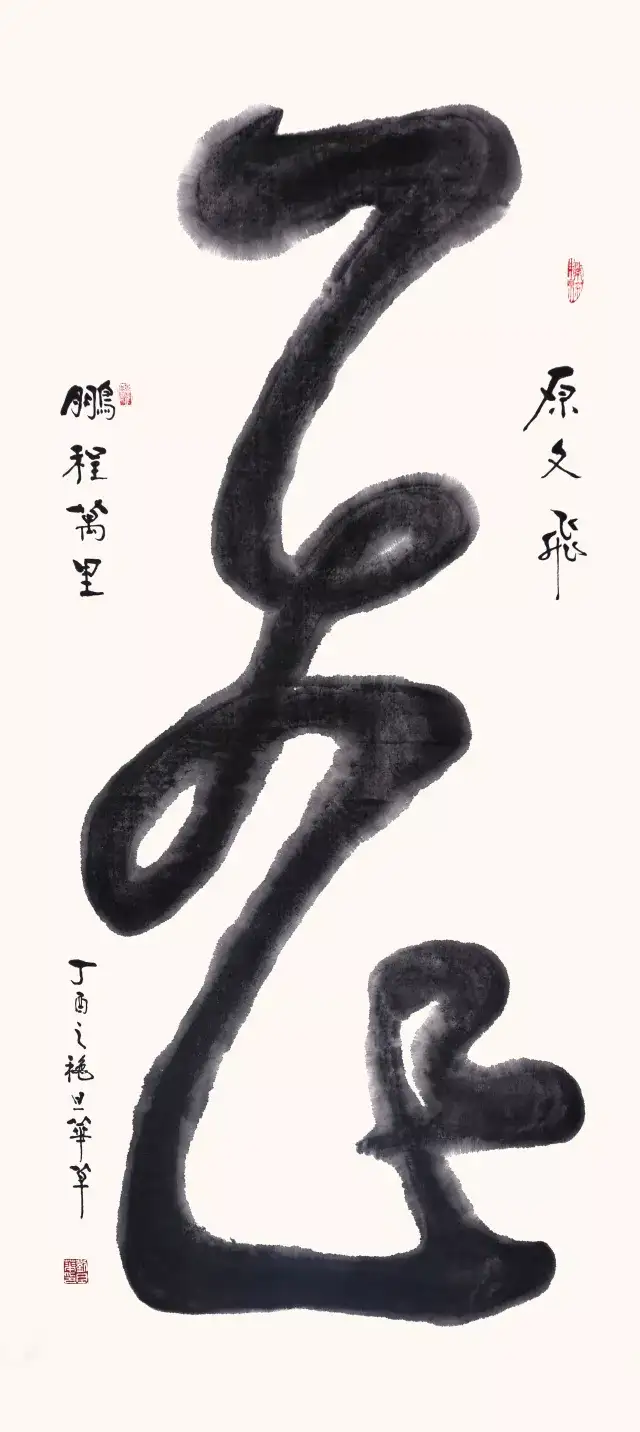 原文飛
飛
鵬程萬里
丁酉之穐旦華草